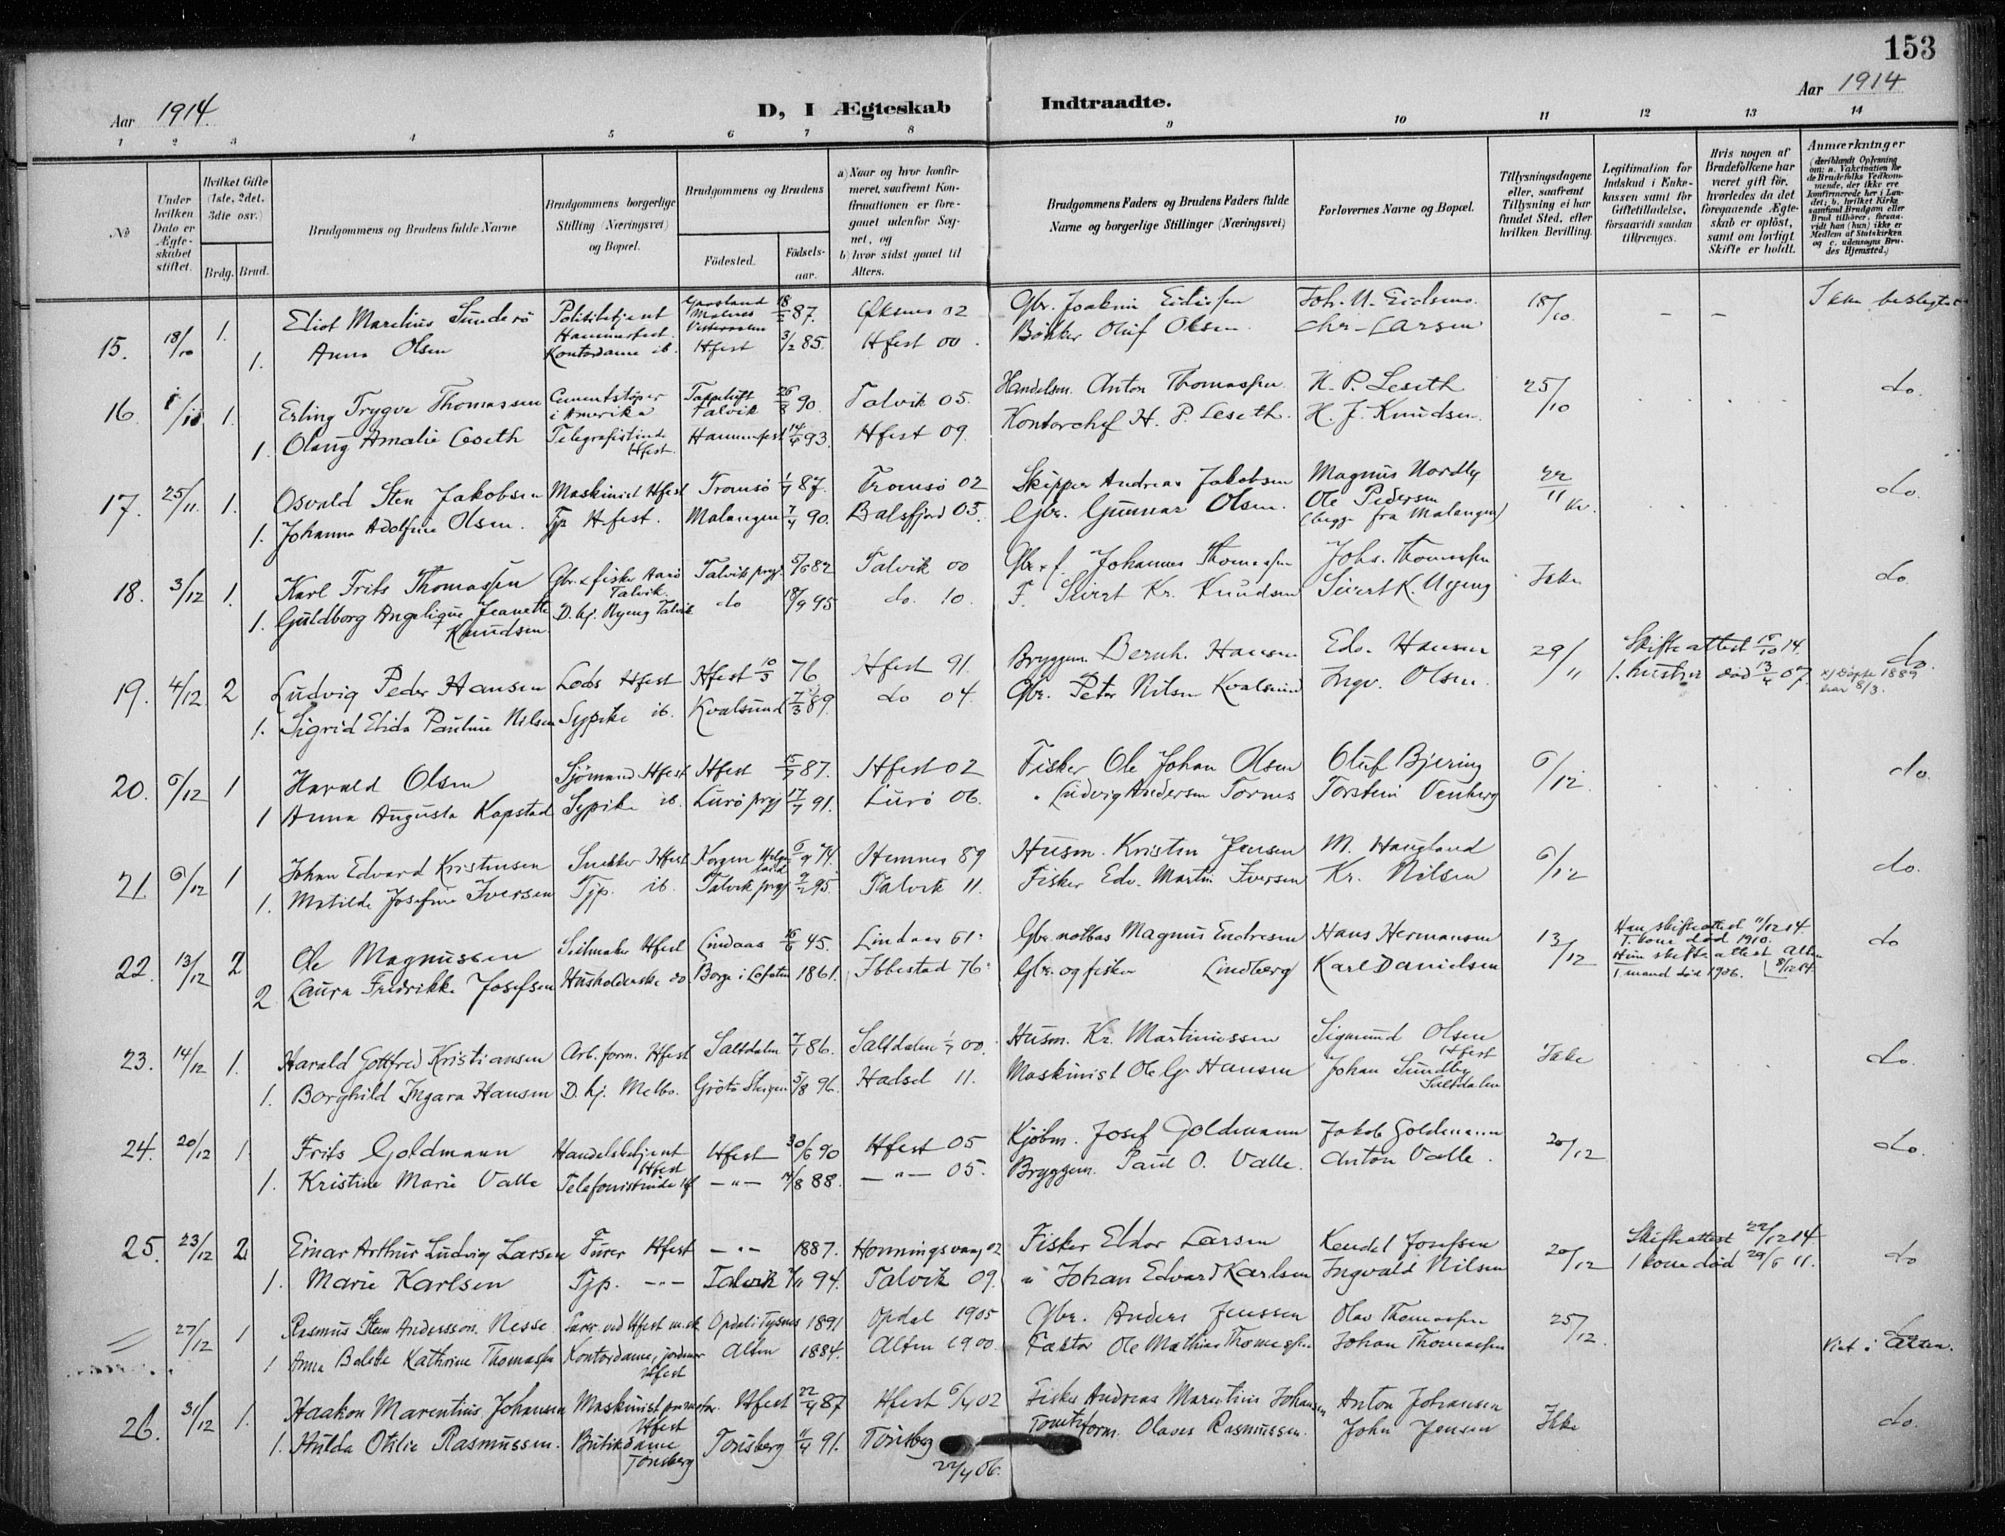 153
Aar 1914.
D, I Ægteskab Indtraadte.
Aar 1914
1 2 3 4 5 6 7 8 9 10 11 12 13 14
№
Under hvilken Dato er Ægteskabet stiftet.
Hvilket Gifte (1ste, 2det, 3die osv.)
Brdg. Brud.
Brudgommens og Brudens fulde Navne
Brudgommens borgerlige Stilling (Næringsvei) og Bopæl.
Brudgommens og Brudens
Fødested. Fødselsaar.
a) Naar og hvor konfirmeret, saafremt Konfirmationen er foregaaet udenfor Sognet, og
b) hvor sidst gaaet til Alters.
Brudgommens Faders og Brudens Faders fulde Navne og borgerlige Stillinger (Næringsvei)
Forlovernes Navne og Bopæl.
Tillysningsdagene eller, saafremt Tillysning ei har fundet Sted, efter hvilken Bevilling.
Legitimation for Indskud i Enkekassen samt for Giftetilladelse, forsaavidt saadan tiltrænges.
Hvis nogen af Brudefolkene har været gift før, hvorledes da det foregaaende Ægteskab er opløst, samt om lovligt Skifte er holdt.
Anmærkninger
(deriblandt Oplysning om: a. Vakcination for de Brudefolks Vedkommende, der ikke ere konfirmerede her i Landet; b. hvilket Kirkesamfund Brudgom eller Brud tilhører, forsaavidt han (hun) ikke er Medlem af Statskirken og c. udensogns Brudes Hjemsted.)
15. 18/10 1. Eliot Marelius Sunderø Politibetjent Hammerfest 18/2 87. Øksnes 02 Gbr. Joakim 18/10 - - Ikke beslægtet
1. Anna Olsen Kontordame ib. Hfest 3/2 85. Hfest 00. Bökker Oluf Olsen. Chr. Larsen
16 1. Erling Trygve Thomassen Cementstøper i Amerika Talvik 26/8 90. Talvik 05. Handelsm. Anton Thomassen H. P. Leseth 25/10 do.
1. Olaug Amalie Leseth Telegrafistinde Hfest. Hammerfest 14/4 93. Hfest 09. Kontorchef H. P. Leseth. H. J. Knudsen.
17. 25/11. 1. Osvald Sten Jakobsen Maskinist Hfest Tromsø 87. Tromsø 02 Skipper Andreas Jakobsen Magnus Nordby 22/11 do.
1. Johanna Adolfine Olsen. Tjp Hfest. Malangen 7/4 90. Balsfjord 05. Gbr. Gunnar Olsen. Ole Pedersen (begge fra Malangen)
18. 3/12 1. Karl Frits Thomassen Gbr. & fisker Talvik. Talvik prgj. 5/6 82 Talvik 00 Gbr. & f. Johannes Thomassen Johs. Thomassen Ikke do.
1. Guldborg Angelique Jeanette Knudsen D. hj. Talvik do 18/9 95 do. 10. F. Sivert Kr. Knudsen Sivert K.
19. 4/12 2 Ludvig Peder Hansen Lods Hfest Hfest 10/3 76 Hfest 91. Bryggem. Bernh. Hansen Edv. Hansen 29/11 Skifteattest 15/10 14. do.
1. Sigrid Elida Pauline Nilsen Sypike ib. Kvalsund 7/3 89. do 04. Gbr. Peter Nilsen Kvalsund Ingv. Olsen. 1. hustru død 13/4 07. x) Døpt 1889 8/3.
20. 6/12 1 Harald Olsen Sjömand Hfest Hfest 15/7 87. Hfest 02 Fisker Ole Johan Olsen Oluf Bjering 6/12. do.
1 Anna Augusta Kopstad Sypike ib. Lurö prgj 17/7 91. Lurö 06. " Ludvig Andersen Tornes Torstein Venberg
21. 6/12 1 Johan Edvard Kristensen Snekker Hfest Korgen Helgeland 6/9 74. Hemnes 89 Husm. Kristen Jensen M. Haugland 6/12 do.
1. Matilde Josefine Iversen Tjp. ib. Talvik prgj 95. Talvik 11. Fisker Edv. Martin Iversen Kr. Nilsen
22. 13/12 2 Ole Magnussen Seilmaker Hfest Lindaas 16/6 45. Lindaas 61. Gbr. notbas Magnus Endresen Hans Hermansen 13/12 Han skifteattest 11/12 14. 1. kone død 1910. do
2 Laura Fredrikke Josefsen Husholderske do. Borge i Lofoten 1861. Ibbestad 76. Gbr. og fisker Lindberg Karl Danielsen Hun skifteattest Alten 8/12 14. 1. mand død 1906.
23. 14/12 1. Harald Gottfred Kristiansen Arb. form. Hfest Saltdalen 7/1 86. Saltdalen 1/7 00. Husm. Kr. Martinussen Sigmund Olsen Hfest Ikke do.
1. Borghild Ingara Hansen D. hj. Melbo. Grötö Steigen 5/8 96. Hadsel 11. Maskinist Ole G. Hansen Johan Sundby Saltdalen
24. 20/12 1. Frits Goldmann Handelsbetjent Hfest Hfest 30/6 90 Hfest 05 Kjøbm. Josef Goldmann Jakob Goldmann 20/12 do.
1. Kristine Marie Valle Telefonistinde Hf —"— 7/8 88. —"— 05. Bryggem. Paul O. Valle. Anton Valle.
25. 23/12 2. Einar Arthur Ludvig Larsen Furer Hfest —"— 1887. Honningsvaag 02 Fisker Eldor Larsen Kendel Josefsen 20/12 Skifteattest 22/12 14 do
1. Marie Karlsen Tjp. —"— Talvik 94. Talvik 09. " Johan Edvard Karlsen Ingvald Nilsen 1 kone død 29/6 11.
27/12 1 Rasmus Steen Anderssøn Nesse Lærer ved Hfest Opdal i Tysnes 1891 Opdal 1905 Gbr. Anders Jenssen Olav Thomassen 25/12. do
1 Anna Bolette Kathrine Thomassen Kontordame, Hfest Alten 1884. Alten 1900. Faktor Ole Mathias Thomassen Johan Thomassen Viet i Alten.
26. 31/12 1. Haakon Marentius Johansen Maskinist Hfest Hfest 22/4 87 Hfest 6/4 02 Fisker Andreas Marentius Johansen Anton Johansen Ikke do.
1. Hulda Otilie Rasmussen. Butikdame Tønsberg Tønsberg 11/4 91. Tønsberg 22/4 06. Tomteform. Olaves Rasmussen. John Jensen